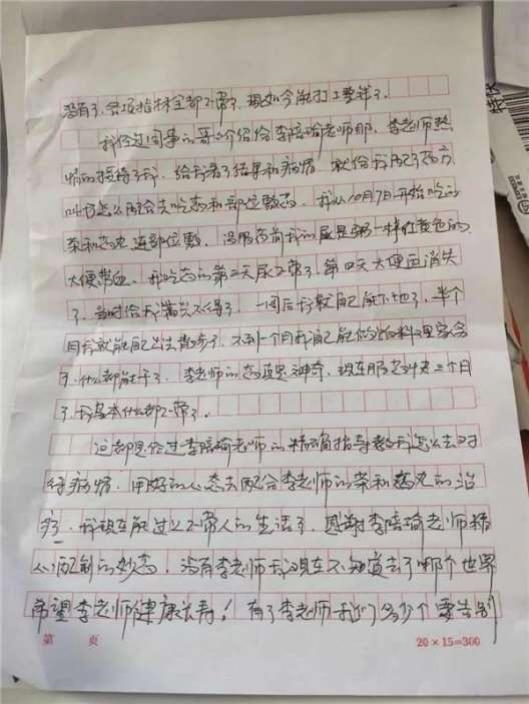 没有了，各项指标全都正常了，现如今能打工挣钱了。
我经过同事的哥介绍给李培瑜老师那，李老师热
情的接待了我，给我看了结果和病情，就给我配了药方
叫我怎么配合去吃药和部位敷药，我从10月7日开始吃
茶和药丸 连部位敷，没服药前我的尿是 一样红黄色的
大便带血，我吃药的第二天尿正常了，第四天大便血消失
了，当时给我 不得了，一周后我就自己能下地了，半个
月我就能自己出去散步了，不到一个月我自己能做 料理家务
了，什么都能干了，李老师的药真是神奇，现在服药 三个月
了，我基本什么都正常了。
这都是经过李培瑜老师的精确指导教我怎么去对
待病情，用好的心态去配合李老师的茶和药丸的治
疗，我现在能过上正常人的生活了，感谢李培瑜老师精
心配制的妙药，没有李老师我现在不知道去了哪个世界
希望李老师健康长寿！有了李老师我们多少个要告别
第 页
20×15=300